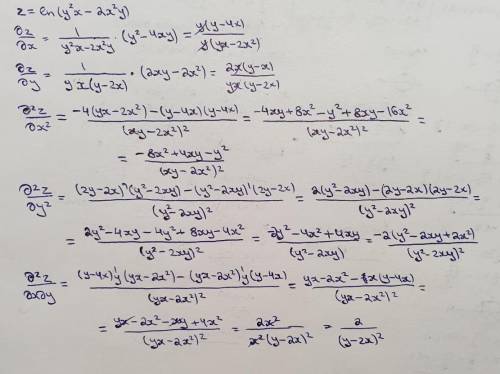 z = ln(y²x − 2x²y)
∂z/∂x = 1/(y²x−2x²y) · (y²−4xy) = y(y−4x)/y(yx−2x²)
∂z/∂y = 1/(yx(y−2x)) · (2xy−2x²) = 2x(y−x)/yx(y−2x)
∂²z/∂x² = (−4(yx−2x²)−(y−4x)(y−4x))/(xy−2x²)² = (−4xy+8x²−y²+8xy−16x²)/(xy−2x²)² =
= (−8x²+4xy−y²)/(xy−2x²)²
∂²z/∂y² = ((2y−2x)'(y²−2xy)−(y²−2xy)'(2y−2x))/(y²−2xy)² = (2(y²−2xy)−(2y−2x)(2y−2x))/(y²−2xy)² =
= (2y²−4xy−4y²+8xy−4x²)/(y²−2xy)² = (−2y²−4x²+4xy)/(y²−2xy) = −2(y²−2xy+2x²)/(y²−2xy)²
∂²z/∂x∂y = ((y−4x)'y(yx−2x²)−(yx−2x²)'y(y−4x))/(yx−2x²)² = (yx−2x²−x(y−4x))/(yx−2x²)² =
= (yx−2x²−xy+4x²)/(yx−2x²)² = 2x²/x²(y−2x)² = 2/(y−2x)²